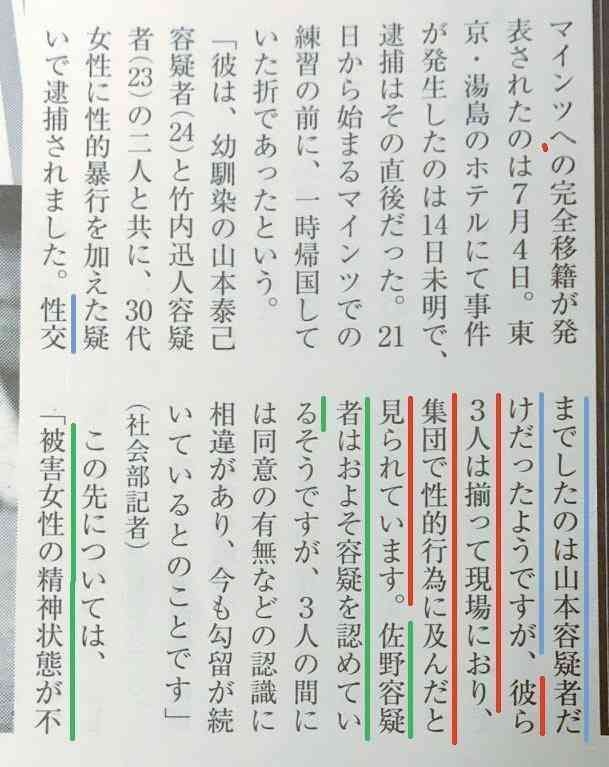 マインツへの完全移籍が発
表されたのは7月4日。東
京・湯島のホテルにて事件
が発生したのは14日未明で、
逮捕はその直後だった。21
日から始まるマインツでの
練習の前に、一時帰国して
いた折であったという。
「彼は、幼馴染の山本泰己
容疑者(24)と竹内迅人容疑
者(23)の二人と共に、30代
女性に性的暴行を加えた疑
いで逮捕されました。性交
までしたのは山本容疑者だ
けだったようですが、彼ら
3人は揃って現場におり、
集団で性的行為に及んだと
見られています。佐野容疑
者はおよそ容疑を認めてい
るそうですが、3人の間に
は同意の有無などの認識に
相違があり、今も勾留が続
いているとのことです」
(社会部記者)
この先については、
「被害女性の精神状態が不